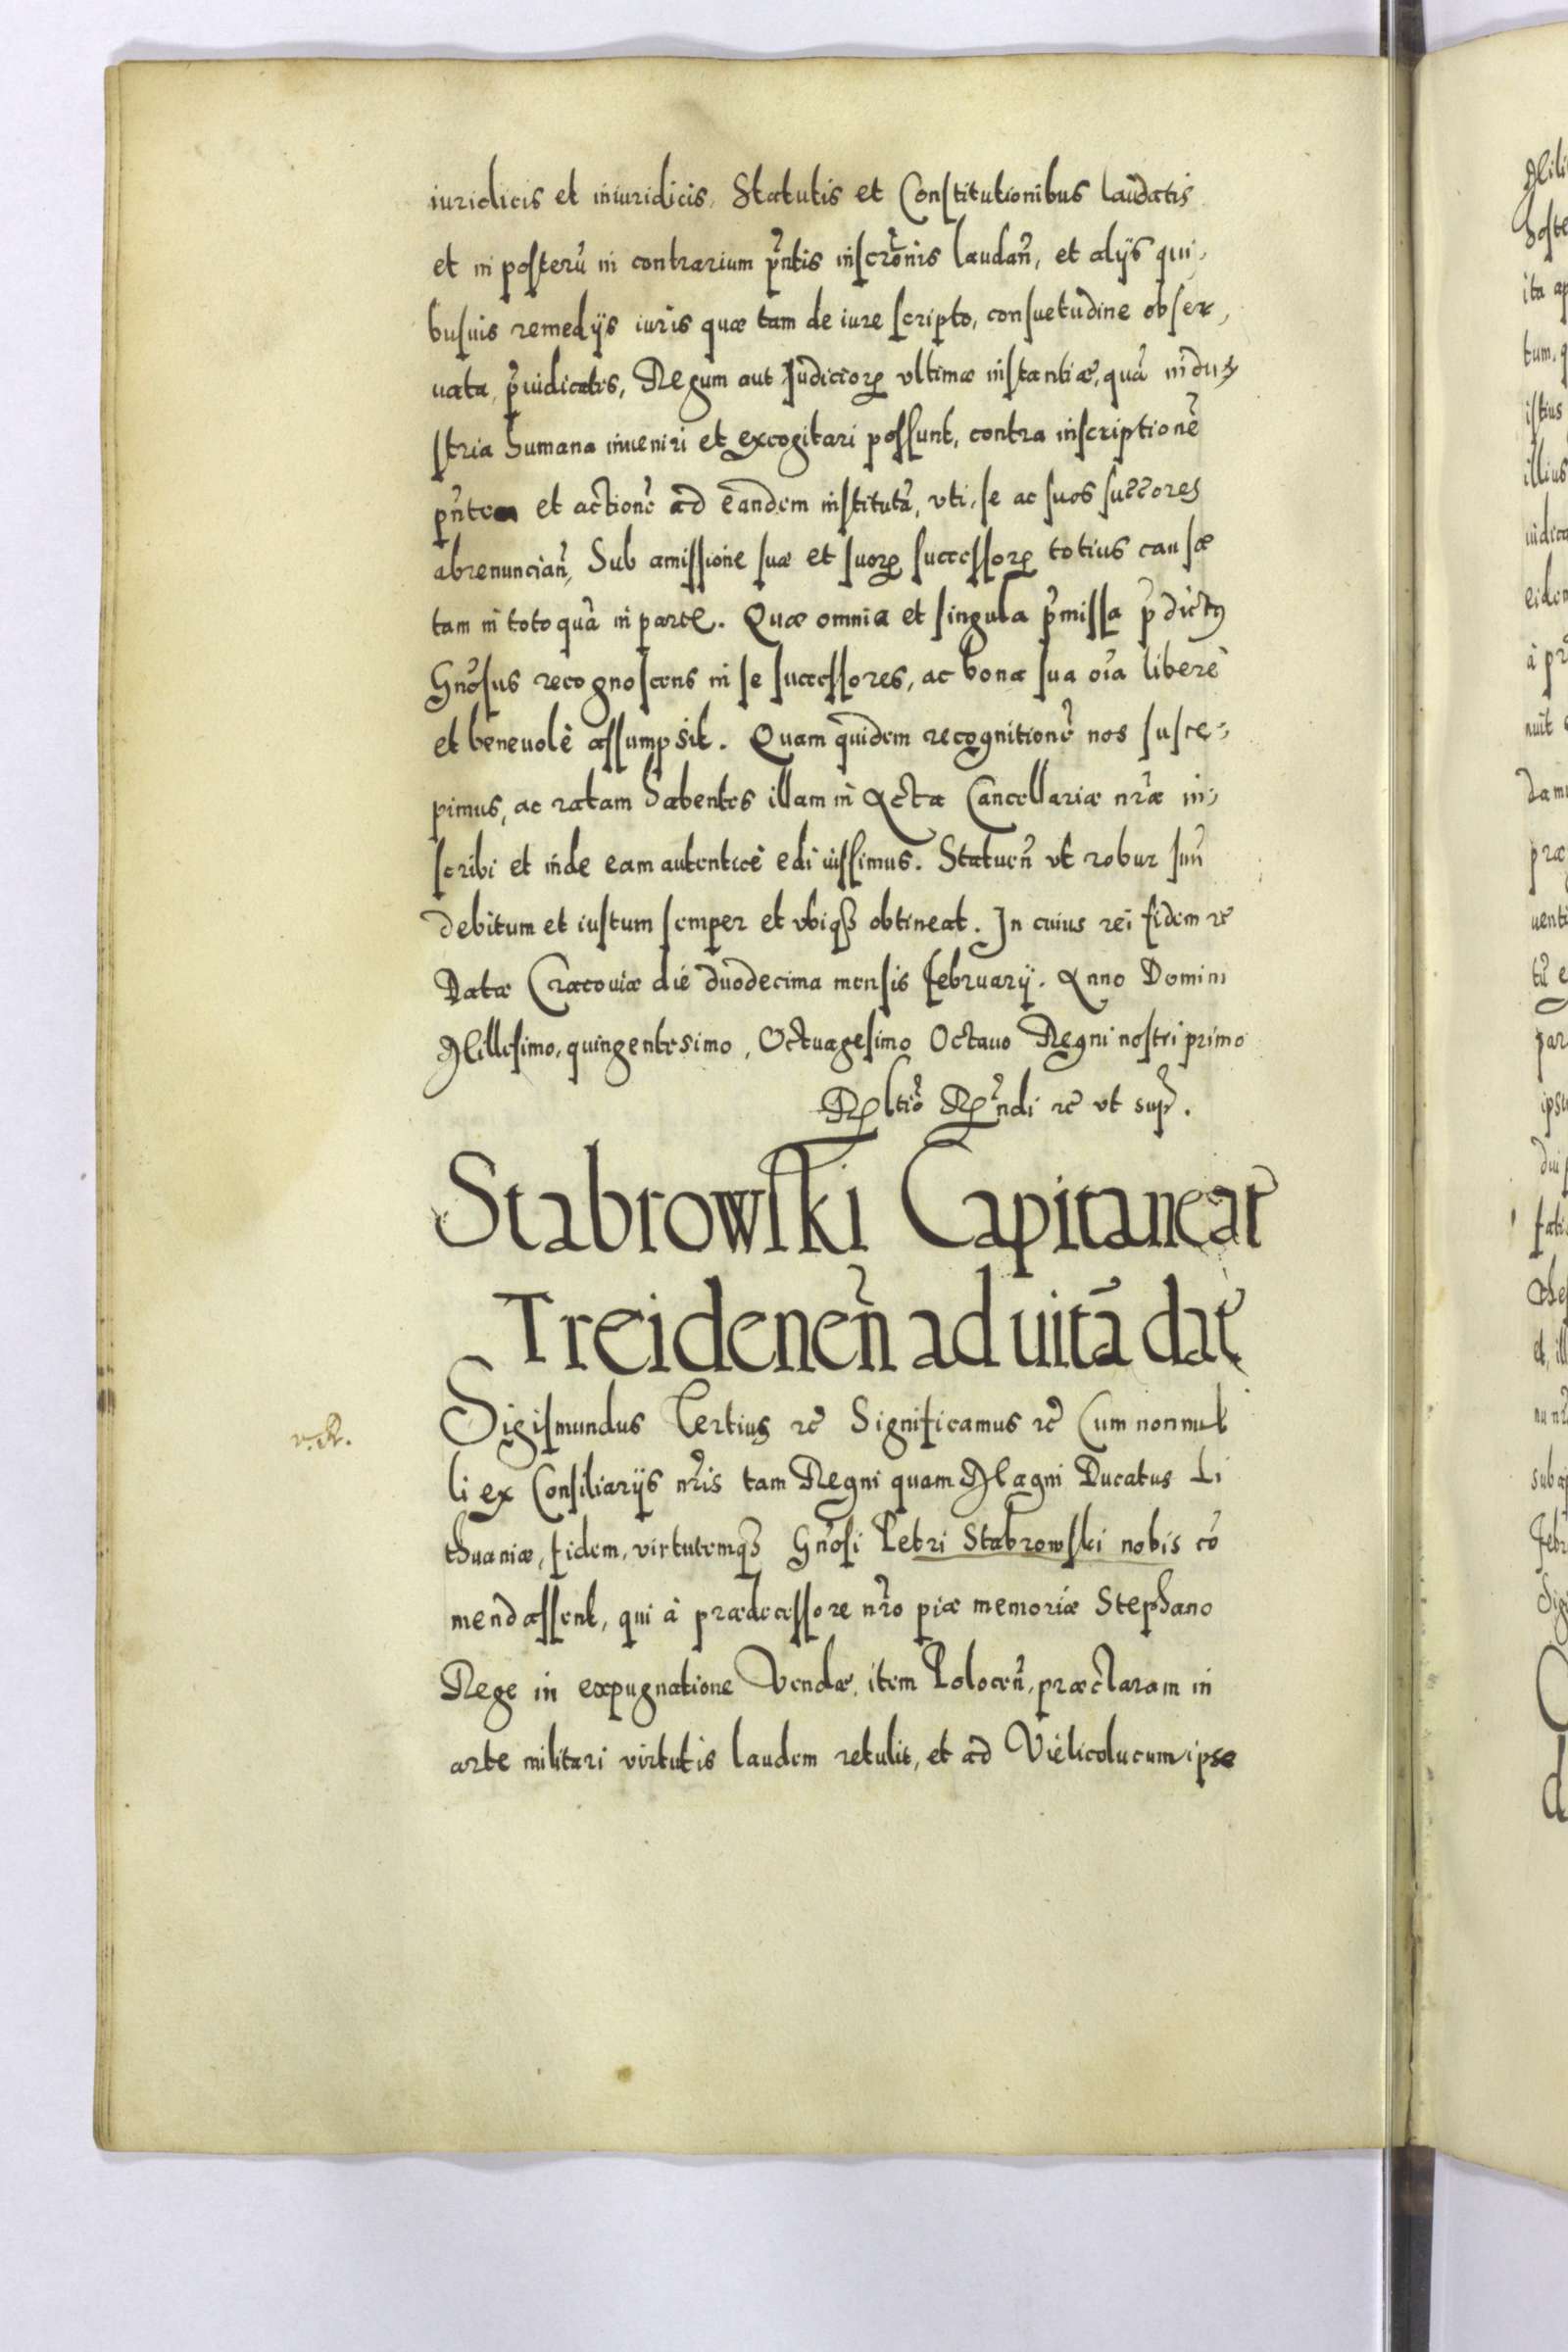 iuridicis et iniuridicis, Statutis et Constitutionibus laudatis
et in posterũ in contrarium pñtis inscrõnis laudañ, et alijs qui-
busuis remedijs iuris quæ tam de iure scripto, consuetudine obser,
uata, p̃iudicatis, Regum aut Judicioꝝ vltimæ instantiæ, quã indu-
stria humana inueniri et excogitari possunt, contra inscriptionẽ
pñtem et actionẽ ad eandem institutã, vti, se ac suos sussores
abrenunciañ, Sub amissione suæ et suoꝝ successoꝝ totius causæ
tam in toto quã in parte. Quæ omnia et singula p̃missa p̃dictꝯ
Gñosus recognoscens in se successores, ac bona sua oĩa liberè
et beneuolè assumpsit. Quam quidem recognitionẽ nos susce-
pimus, ac ratam habentes illam in Acta Cancellariæ nr̃æ in-
scribi et inde eam autenticè edi iussimus. Statueñ vt robur suũ
debitum et iustum semper et vbiqꝫ obtineat. In cuius rei fidem ꝛc̃
Datæ Cracouiæ die duodecima mensis februarij. Anno Domini
Millesimo, quingentesimo, Octuagesimo Octauo Regni nostri primo
Rꝑltiõ Rꝑñdi ꝛc̃ vt sup̃.
Stabrowski Capitaneat̃
Treideneñ ad uitã dat̃
Sigismundus Tertius ꝛc̃ Significamus ꝛc̃ Cum nonnul
li ex Consiliarijs nr̃is tam Regni quam Magni Ducatus Li
thuaniæ, fidem, virtutemqꝫ Gñosi Petri Stabrowski nobis cõ
mendassent, qui à prædecessore nr̃o piæ memoriæ Stephano
Rege in expugnatione Vendæ, item Poloceñ, præclaram in
arte militari virtutis laudem retulit, et ad Vielicolucum ipse